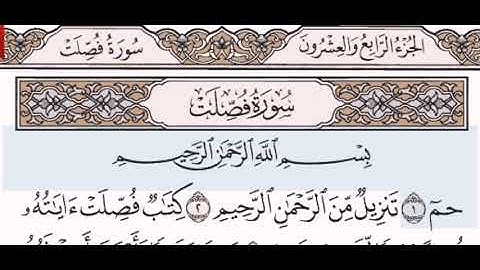 الجُزْءُ الرَّابِعُ وَالعِشْرُونَ سُورَةُ فُصِّلَتْ
سُورَةُ فُصِّلَتْ
بِسْمِ اللَّهِ الرَّحْمَٰنِ الرَّحِيمِ
حمٓ ١ تَنزِيلٌ مِّنَ الرَّحْمَٰنِ الرَّحِيمِ ٢ كِتَٰبٌ فُصِّلَتْ ءَايَٰتُهُۥ